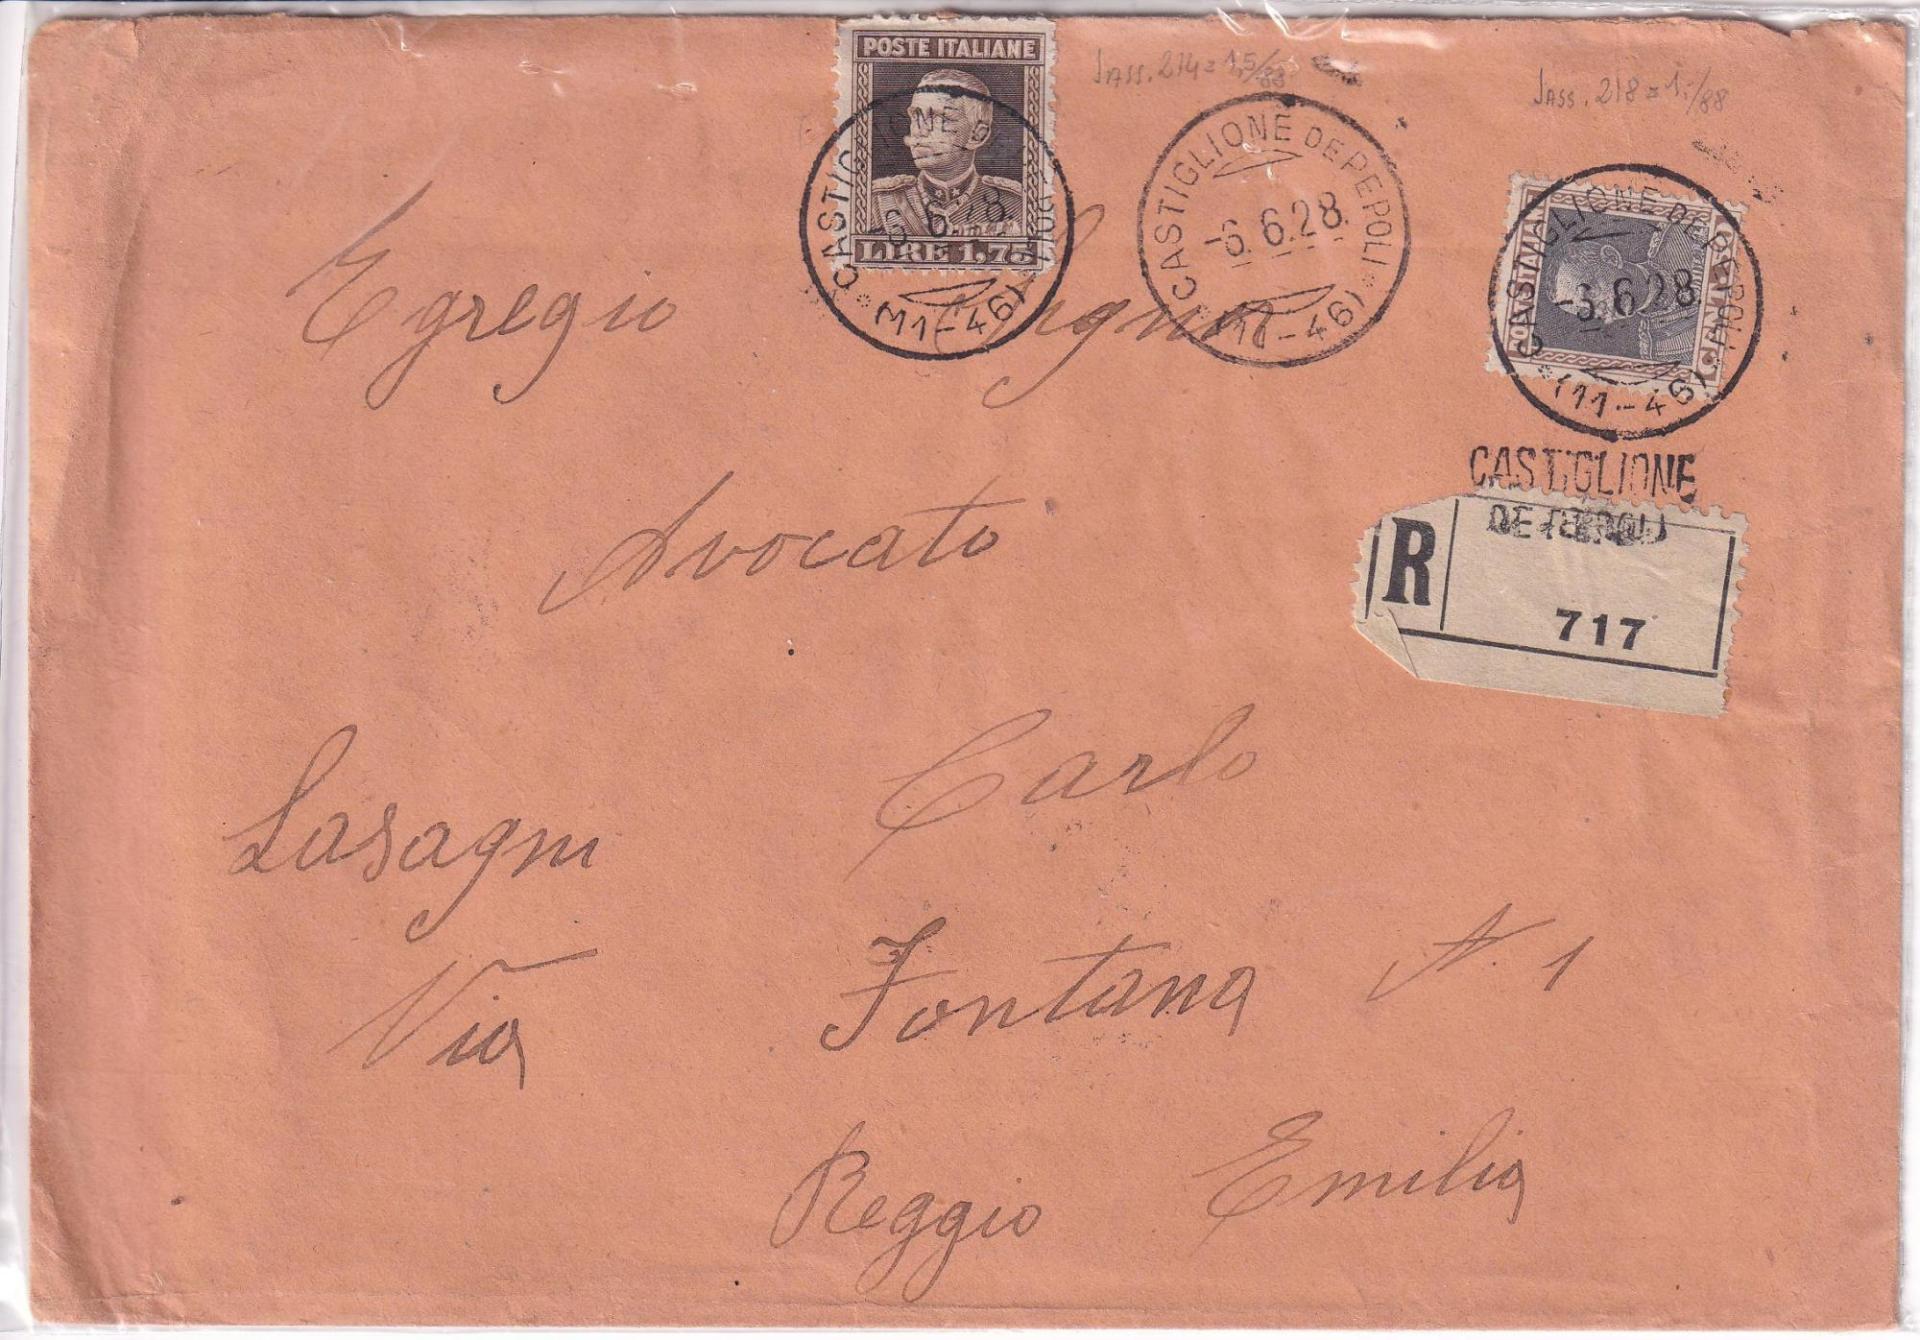 POSTE ITALIANE
LIRE 1,75
SASS. 214 = 1,5/88
SASS. 218 = 1,-/88
CASTIGLIONE DE PEPOLI
-6.6.28.
(11-46)
CASTIGLIONE DE PEPOLI
-6.6.28.
(11-46)
CASTIGLIONE DE PEPOLI
-6.6.28
(11-46)
CASTIGLIONE
DE PEPOLI
R
717
Egregio Signor
Avvocato
Lasagni Carlo
Via Fontana N. 1
Reggio Emilia